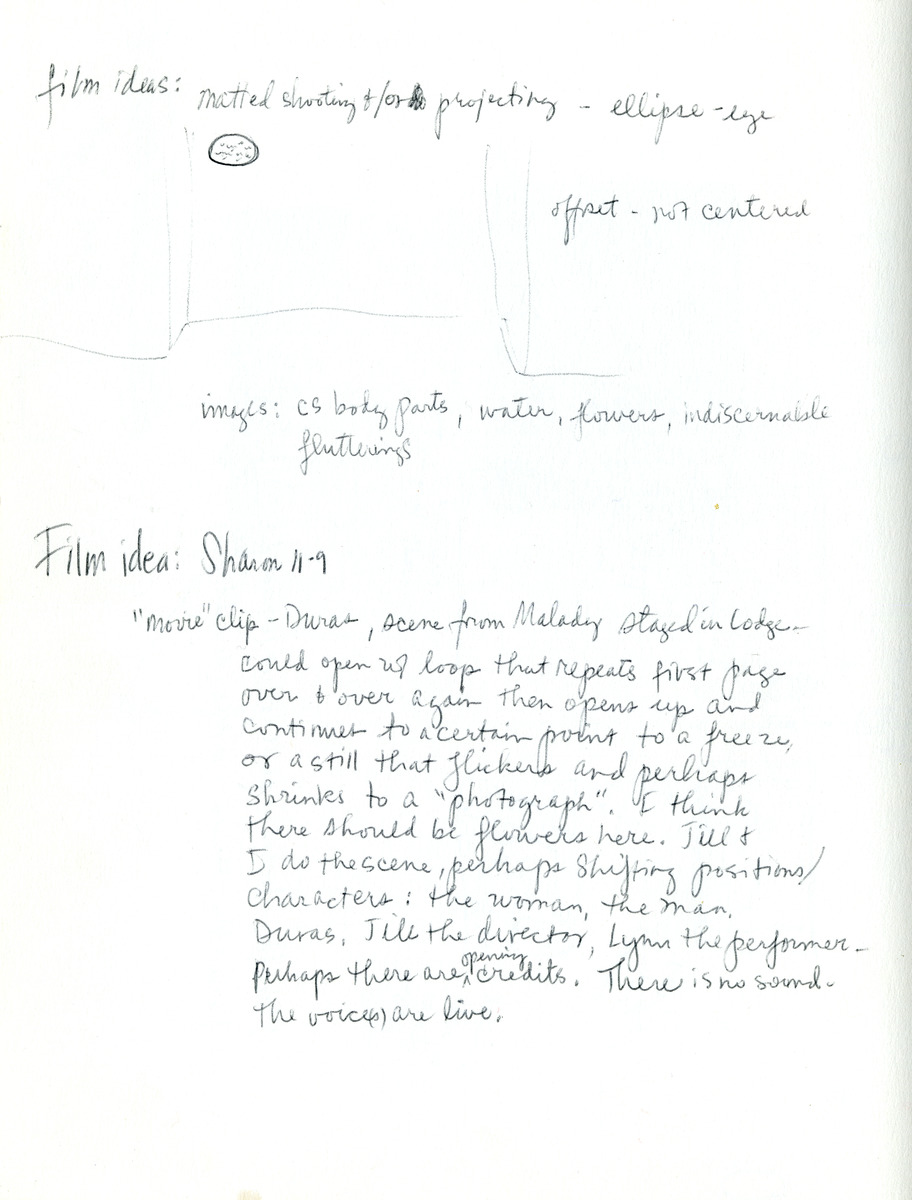 film ideas: matted shooting &/or projecting - ellipse - eye
offset - not centered
images: cs body parts, water, flowers, indiscernable
flutterings
Film idea: Sharon 11-9
"movie" clip - Duras, scene from Malady staged in Lodge -
could open w/ loop that repeats first page
over & over again then opens up and
continues to a certain point to a freeze,
or a still that flickers and perhaps
shrinks to a "photograph". I think
there should be flowers here. Jill &
I do the scene, perhaps shifting positions/
characters: the woman, the man,
Duras, Jill the director, Lynn the performer -
Perhaps there are opening credits. There is no sound.
the voice(s) are live.